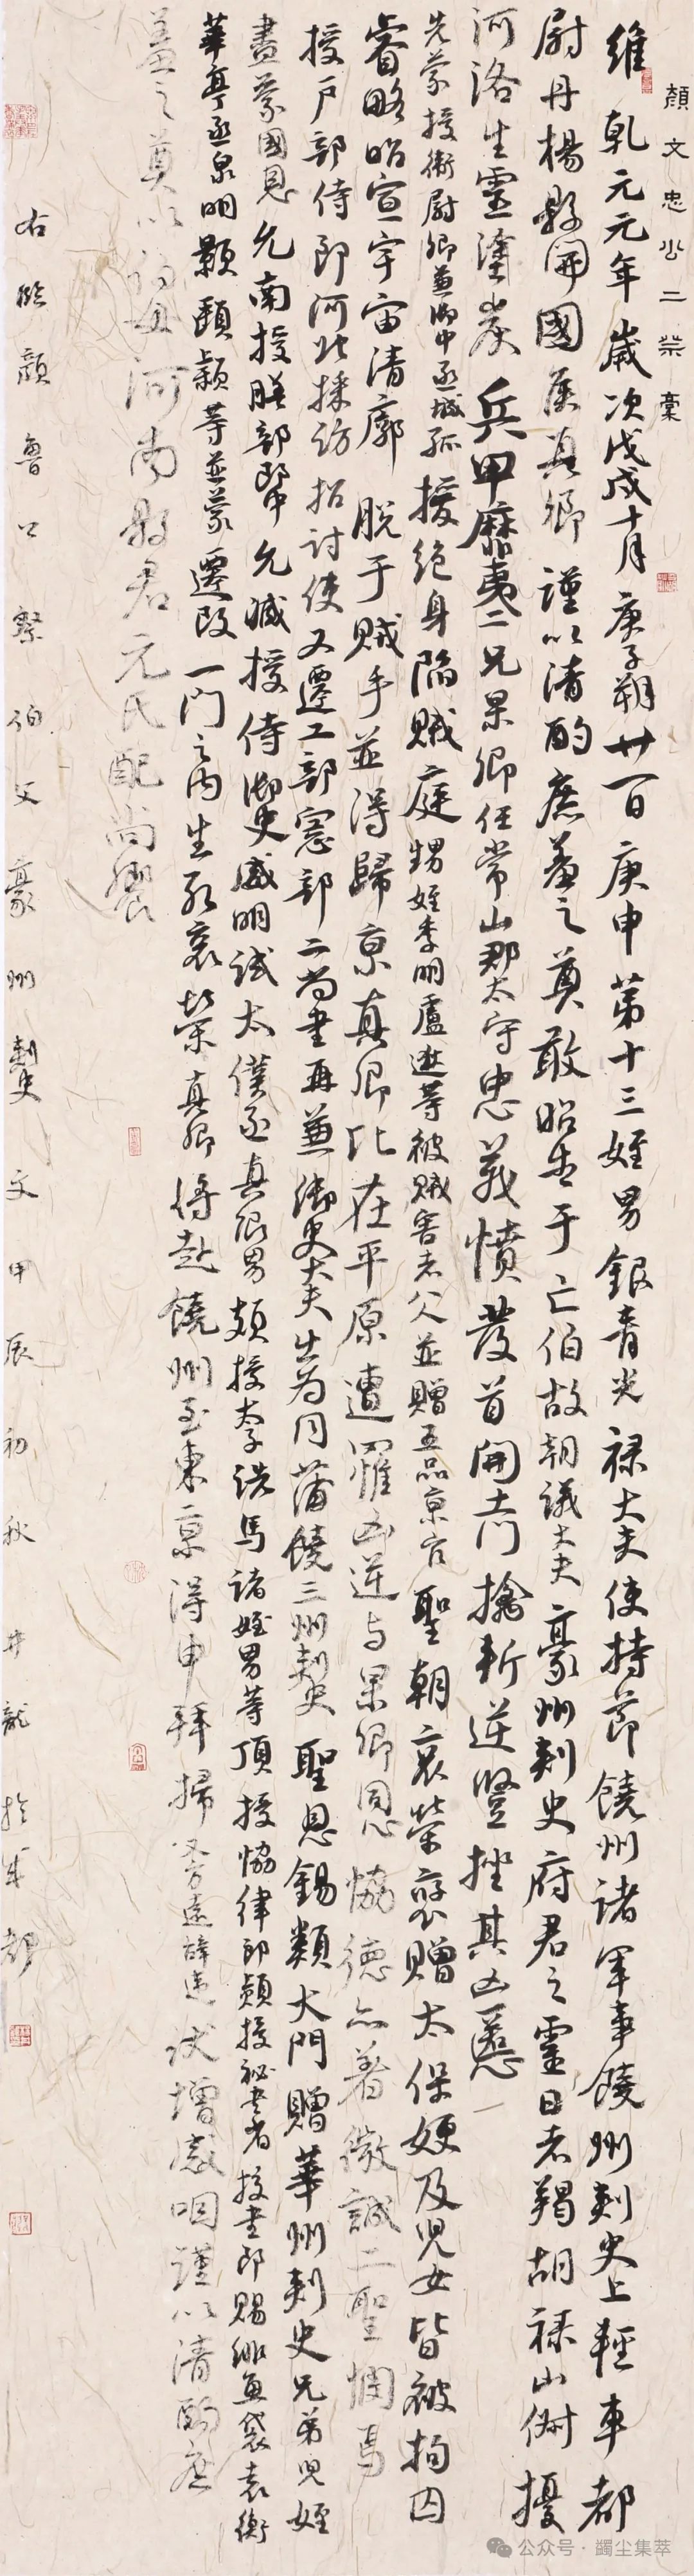 顏文忠公二祭稾
維乾元元年歲次戊戌十月庚子朔廿一日庚申第十三姪男銀青光祿大夫使持節饒州諸軍事饒州刺史上輕車都
尉丹楊縣開國侯真卿謹以清酌庶羞之奠敢昭告于亡伯故朝議大夫豪州刺史府君之靈曰者羯胡祿山俶擾
河洛生靈塗炭兵甲靡夷二兄杲卿任常山郡太守忠義憤發首開土門擒斬逆豎挫其凶慝
先蒙授衛尉卿兼御史中丞城孤援絕身陷賊庭甥姪季明盧逖等被賊害者八人並贈五品京官聖朝哀榮褒贈太保嫂及兒女皆被拘囚
睿略昭宣宇宙清廓脫于賊手並得歸京真卿比在平原遭罹凶逆與杲卿同心協德亦著微誠二聖憫焉
授戶部侍郎河北採訪招討使又遷工部憲部二尚書再兼御史大夫出為同蒲饒三州刺史聖恩錫類大門贈華州刺史兄弟兒姪
盡蒙國恩允南授膳部郎中允臧授侍御史威明試太僕丞真長男頗授太子洗馬諸姪男等頂授協律郎熲授祕書省校書郎賜緋魚袋袁衡
華亭丞泉明顥頲潁等並蒙遷改一門之內生死哀榮真卿將赴饒州至東京得申拜掃又方遠辭違伏增感咽謹以清酌庶
羞之奠以伯母河南縣君元氏配尚饗
右臨顏魯公祭伯父豪州刺史文甲辰初秋井龍於成都
公众号·蠲尘集萃